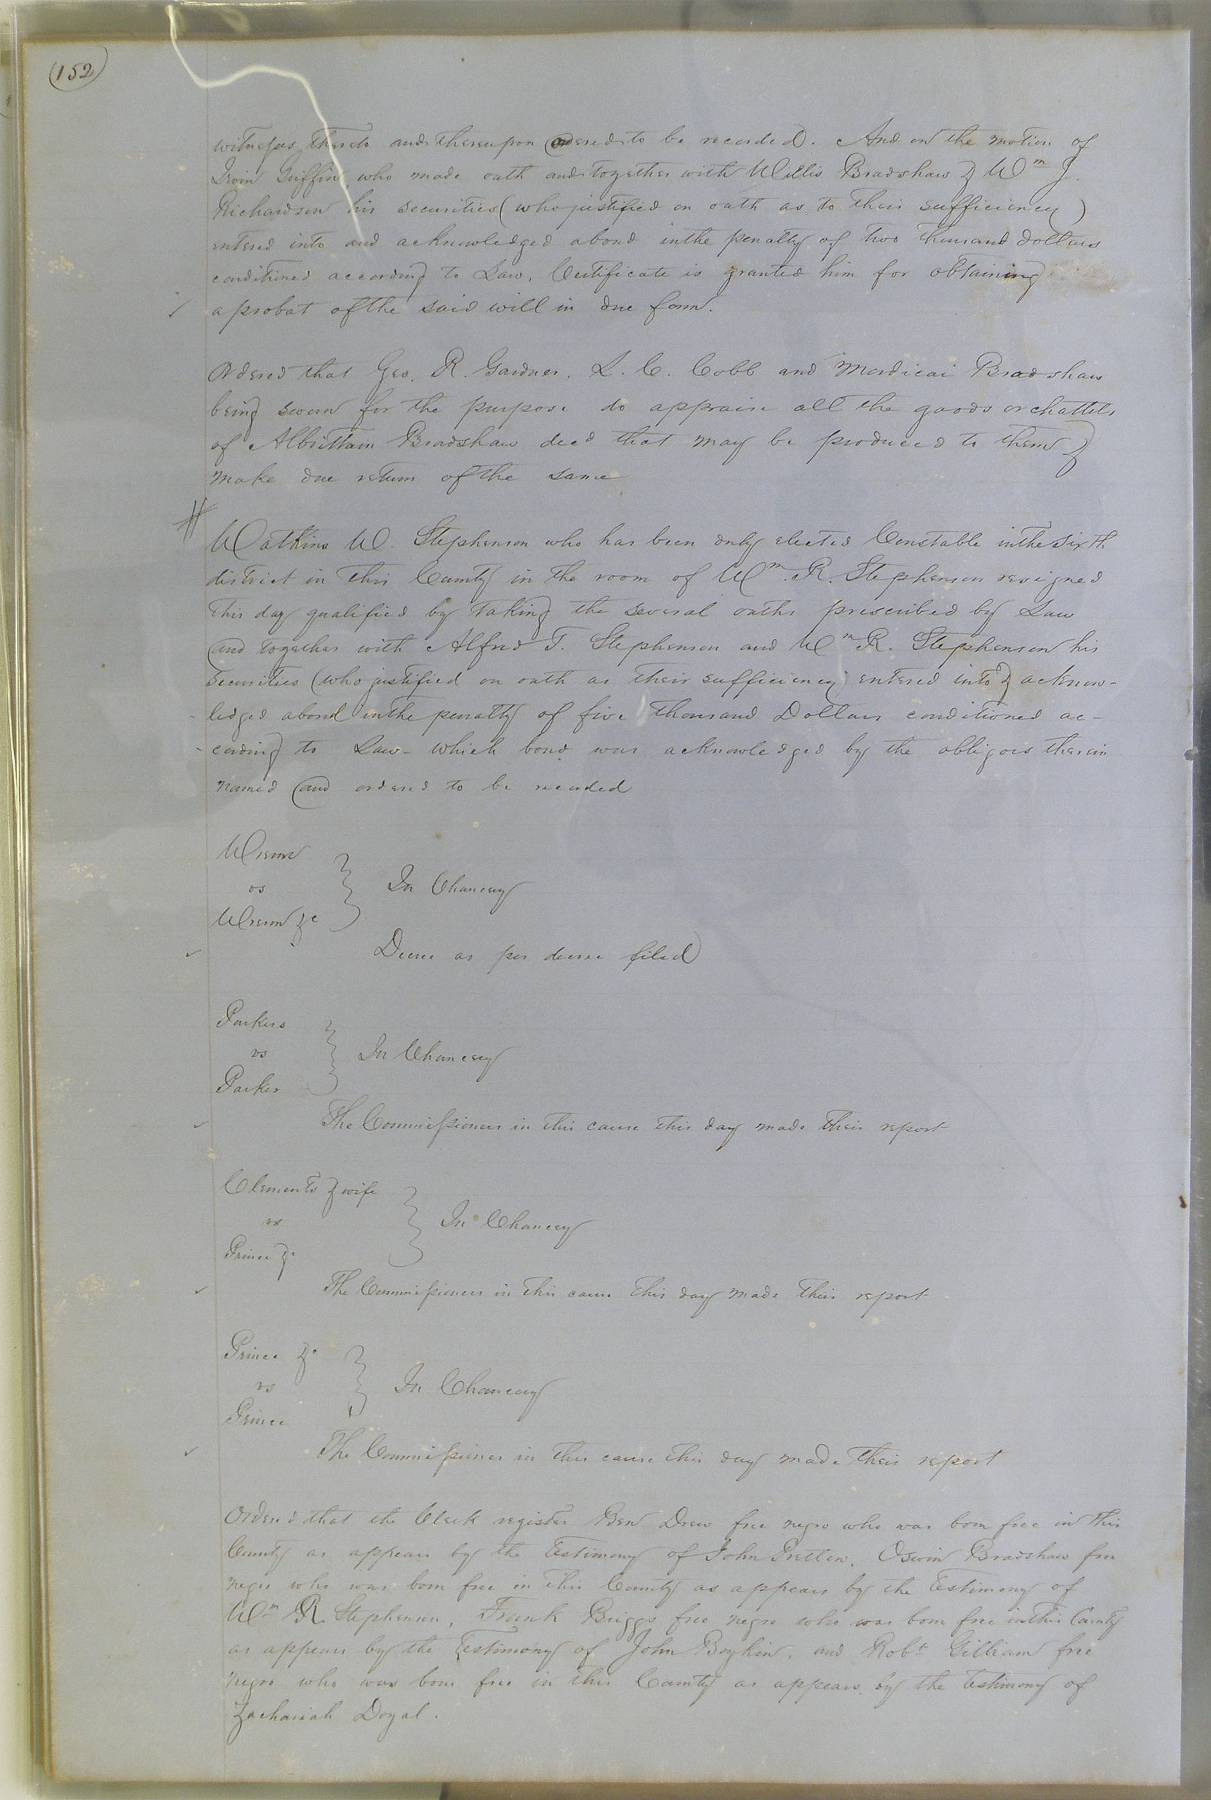 (152)
witness thereto and thereupon ordered to be recorded. And on the motion of
Irvin Griffin who made oath and together with Willis Bradshaw & Wm J.
Richardson his securities (who justified on oath as to their sufficiency)
entered into and acknowledged abond inthe penalty of two thousand dollars
conditioned according to Law, Certificate is granted him for obtaining
a probat of the said will in due form.
Ordered that Geo. R. Gardner, L. C. Cobb and Mordicai Bradshaw
being sworn for the purpose do appraise all the goods or chattels
of Albrittain Bradshaw decd that may be produced to them &
make due return of the same
Watkins W. Stephenson who has been duly elected Constable inthe sixth
district in this County in the room of Wm. R. Stephenson resigned
this day qualified by taking the several oaths prescribed by Law
and together with Alfred T. Stephenson and Wm R. Stephenson his
securities (who justified on oath as their sufficiency) entered into & acknow-
ledged abond inthe penalty of five thousand Dollars conditioned ac-
-cording to Law- which bond was acknowledged by the obligors therein
named and ordered to be recorded
Wrenn
vs
Wrenn &c
In Chancery
Decree as per decree filed
Parkers
vs
Parker
In Chancery
The Commissioners in this cause this day made their report
Clements & wife
vs
Prince &c
In Chancery
The Commissioners in this cause this day made their report
Prince &c
vs
Prince
In Chancery
The Commissioners in this cause this day made their report
Ordered that the Clerk register Ben Drew free negro who was born free in this
County as appears by the testimony of John Pretlow, Oswin Bradshaw free
negro who was born free in this County as appears by the testimony of
Wm R. Stephenson, Frank Briggs free negro who was born free inthis County
as appears by the testimony of John Boykin, and Robt Gilliam free
negro who was born free in this County as appears by the testimony of
Zachariah Doyal.